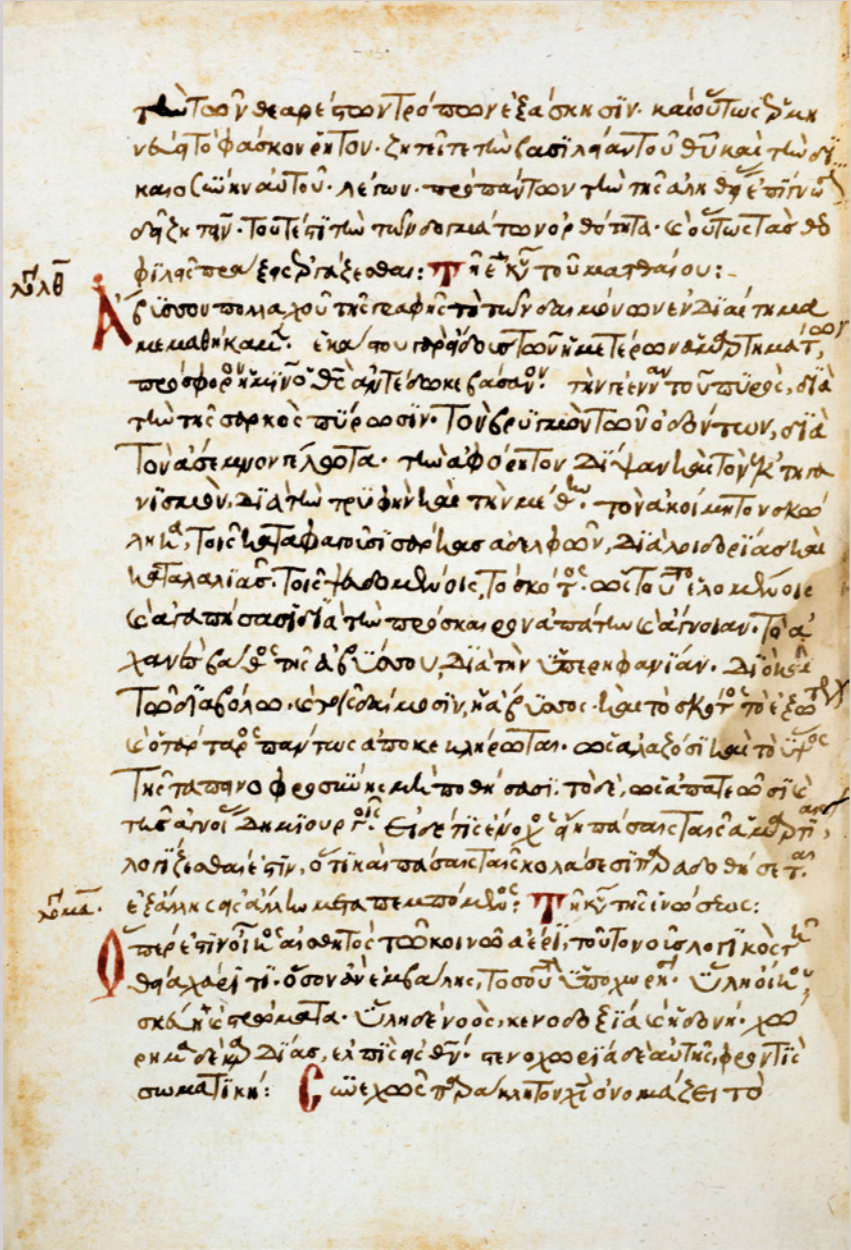 τὴν τῶν θεαρέστων τρόπων ἐξάσκησιν· καὶ οὕτως
τὸ φάσκον ῥητόν· ζητεῖτε τὴν βασιλείαν τοῦ θῦ καὶ τὴν δι
καιοσύνην αὐτοῦ· λέγων· πρὸ πάντων τὴν τῆς ἀληθείας ἐπίγνω
δεῖ ζητεῖν· τουτέστι τὴν τῶν δογμάτων ὀρθότητα· καὶ οὕτως τὰς θεο
φιλεῖς πράξεις ἐργάζεσθαι: τοῦ ματθαίου:
Ἀβύσσου πολλαχοῦ τῆς γραφῆς τὸ τῶν δαιμόνων ἐνδιαίτημα
μεμαθήκαμεν· ἑκάστου γὰρ εἴδους τῶν ἡμετέρων ἁμαρτημάτων,
πρόσφορον ἡμῖν ὁ θς ἀντέδωκε βάσανον· τὴν γέενναν τοῦ πυρὸς, διὰ
τὴν τῆς σαρκὸς πύρωσιν· Τὸν βρυγμὸν τῶν ὀδόντων, διὰ
Τὸν ἄσεμνον γέλωτα· τὴν ἀφόρητον δίψαν καὶ τὸν
διὰ τὴν τρυφὴν καὶ τὴν μέθην· τὸν ἀκοίμητον σκώ
ληκα, τοῖς καταφαγοῦσι σάρκας ἀδελφῶν, διὰ λοιδορίας καὶ
καταλαλιάς· Τοῖς ψευδομένοις, τὸ σκότος· ὡς τοῦτο ἑλομένοις
καὶ ἀγαπήσασι διὰ τὴν πρόσκαιρον ἀπάτην καὶ ἄγνοιαν· Τὸ ἀ
χανὲς βάθος τῆς ἀβύσσου, διὰ τὴν ὑπερηφανίαν· διὸ καὶ
Τῷ διαβόλῳ καὶ τοῖς δαίμοσιν, ἡ ἄβυσσος καὶ τὸ σκότος τὸ ἐξώτερον
καὶ ὁ τάρταρος πάντως ἀποκεκλήρωται· ὡς ἀλαζόσι καὶ τὸ ὕψος
Τῆς ταπεινοφροσύνης μὴ ποθήσασι· τὸ δὲ, ὡς ἀπατεῶσι καὶ
τῆς ἀγνοίας δημιουργοῖς· Εἰ δέ τις ἔνοχος εἴη πάσαις ταῖς ἁμαρτίαις,
λογίζεσθαι ἐστὶν, ὅτι καὶ πάσαις ταῖς κολάσεσι παραδοθήσεται.
ἐξ ἄλλης εἰς ἄλλην μεταπεμπόμενος:
Ὅπερ ἐστὶν οἶκος αἰσθητὸς τῷ κοινῷ ἀέρι, τοῦτο νοῦς λογικὸς τῇ
θείᾳ χάριτι· ὅσον ἂν ἐμβάλῃς, τοσοῦτον ὑποχωρεῖ· ὕλη οἴκου,
σκεύη καὶ πράγματα· ὕλη δὲ νοὸς, κενοδοξία καὶ ἡδονή· χώ
ρημα δὲ καρδίας, ἐλπὶς εἰς θν· στενοχωρία δὲ αὐτῆς, φροντὶς
σωματική: παράκλητον χς ὀνομάζει τὸ